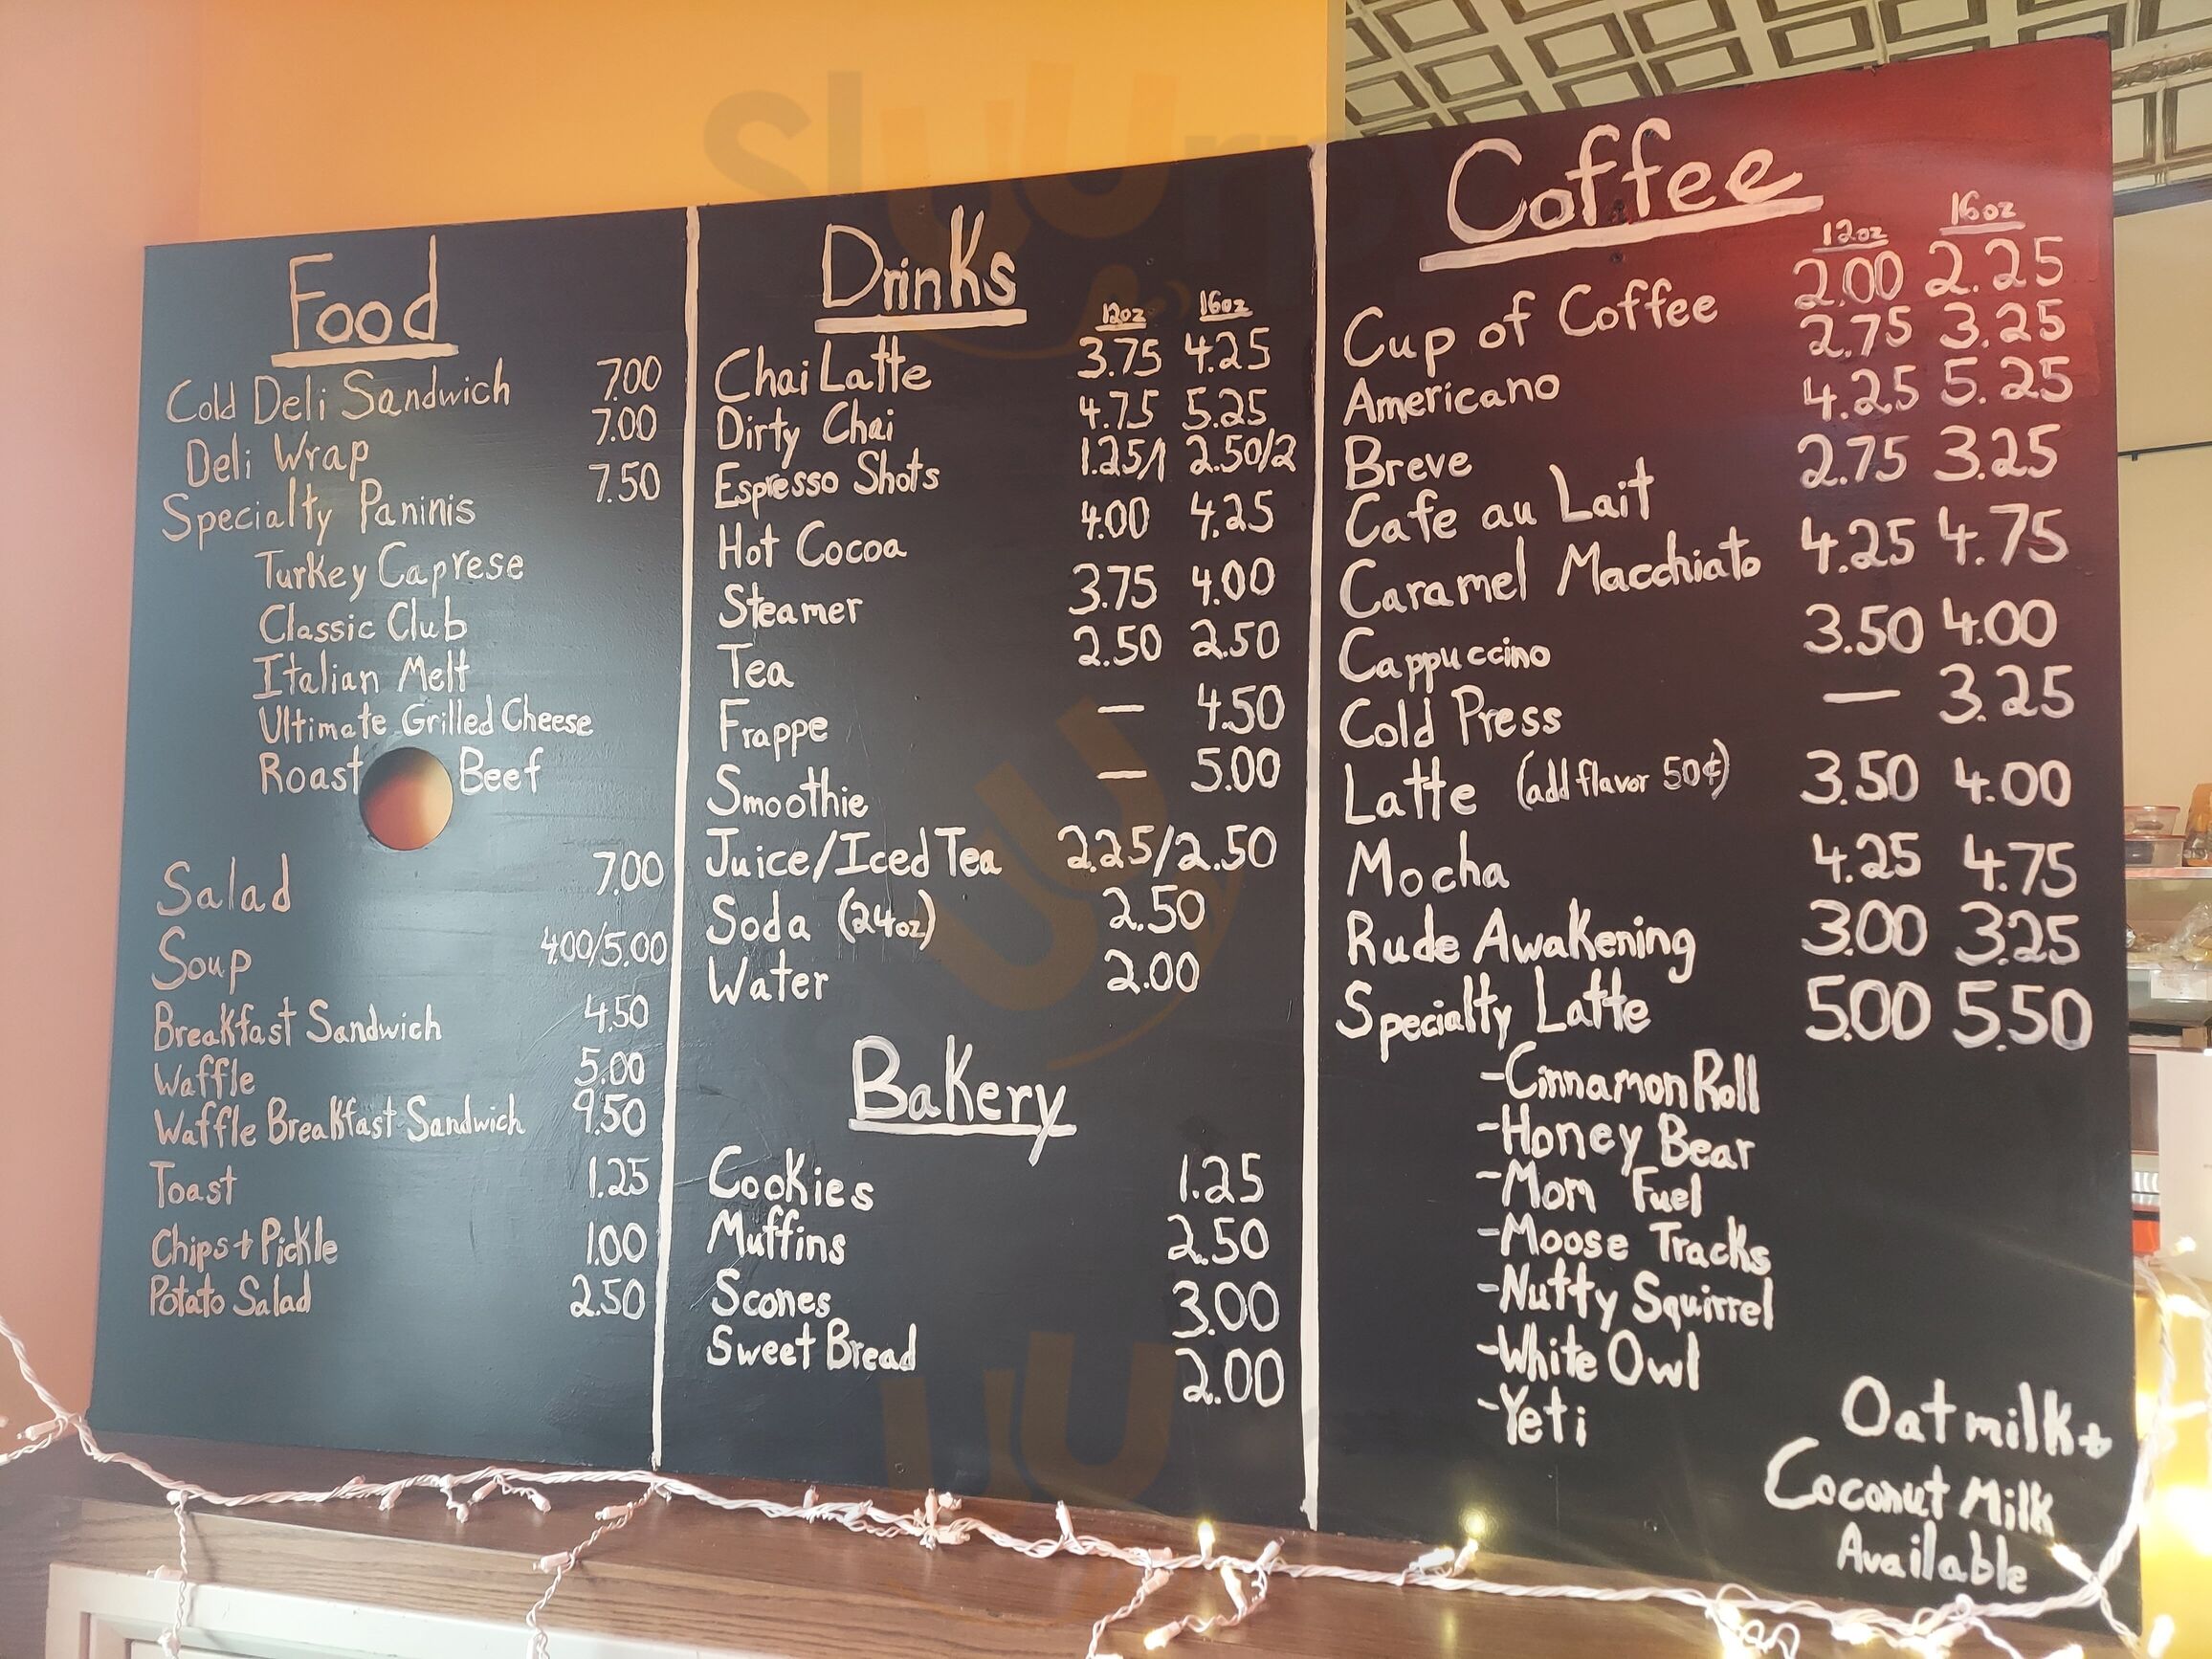 Food
Cold Deli Sandwich 7.00
Deli Wrap 7.00
Specialty Paninis 7.50
Turkey Caprese
Classic Club
Italian Melt
Ultimate Grilled Cheese
Roast Beef
Salad 7.00
Soup 4.00/5.00
Breakfast Sandwich 4.50
Waffle 5.00
Waffle Breakfast Sandwich 9.50
Toast 1.25
Chips + Pickle 1.00
Potato Salad 2.50
Drinks
12oz 16oz
Chai Latte 3.75 4.25
Dirty Chai 4.75 5.25
Espresso Shots 1.25/1 2.50/2
Hot Cocoa 4.00 4.25
Steamer 3.75 4.00
Tea 2.50 2.50
Frappe — 4.50
Smoothie — 5.00
Juice/Iced Tea 2.25/2.50
Soda (24oz) 2.50
Water 2.00
Bakery
Cookies 1.25
Muffins 2.50
Scones 3.00
Sweet Bread 2.00
Coffee
12oz 16oz
Cup of Coffee 2.00 2.25
Americano 2.75 3.25
Breve 4.25 5.25
Cafe au Lait 2.75 3.25
Caramel Macchiato 4.25 4.75
Cappuccino 3.50 4.00
Cold Press — 3.25
Latte (add flavor 50¢) 3.50 4.00
Mocha 4.25 4.75
Rude Awakening 3.00 3.25
Specialty Latte 5.00 5.50
-Cinnamon Roll
-Honey Bear
-Mom Fuel
-Moose Tracks
-Nutty Squirrel
-White Owl
-Yeti
Oat milk +
Coconut Milk
Available